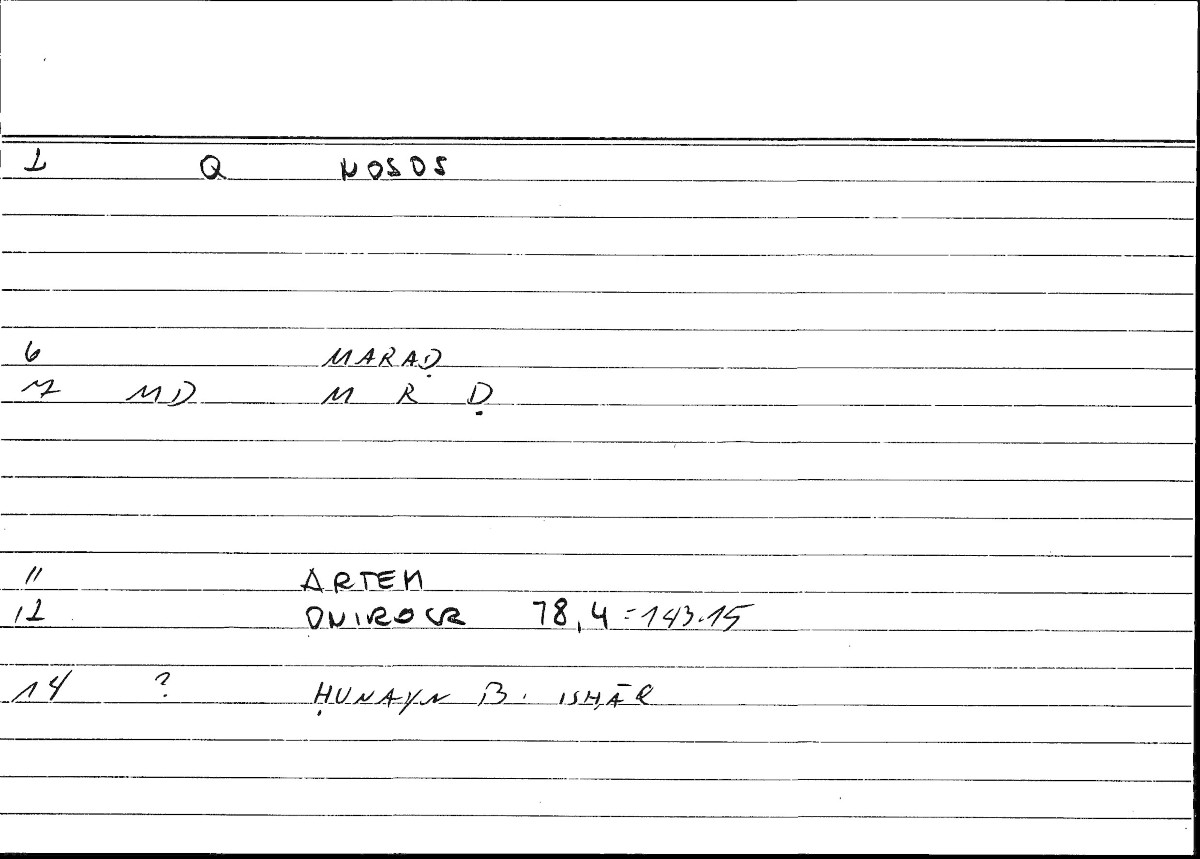 1 Q NOSOS
6 MARAḌ
7 MD M R Ḍ
11 ARTEM
12 ONIROCR 78,4 = 143.15
14 ? ḤUNAYN B. ISḤĀQ